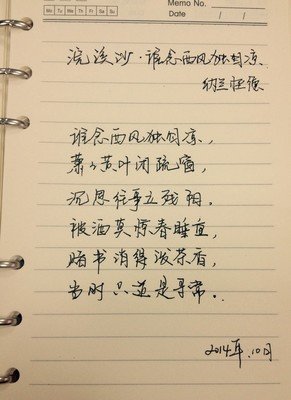 Memo No.
Mo Tu We Th Fr Sa Su
Date / /
浣溪沙·谁念西风独自凉
纳兰性德
谁念西风独自凉，
萧々黄叶闭疏窗，
沉思往事立残阳。
被酒莫惊春睡重，
赌书消得泼茶香，
当时只道是寻常。
2014年.10月